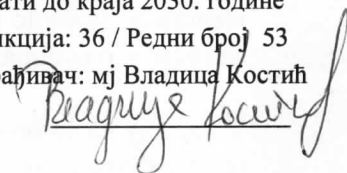 ати до краја 2030. године
нкција: 36 / Редни број 53
рађивач: мј Владица Костић
Владица Костић